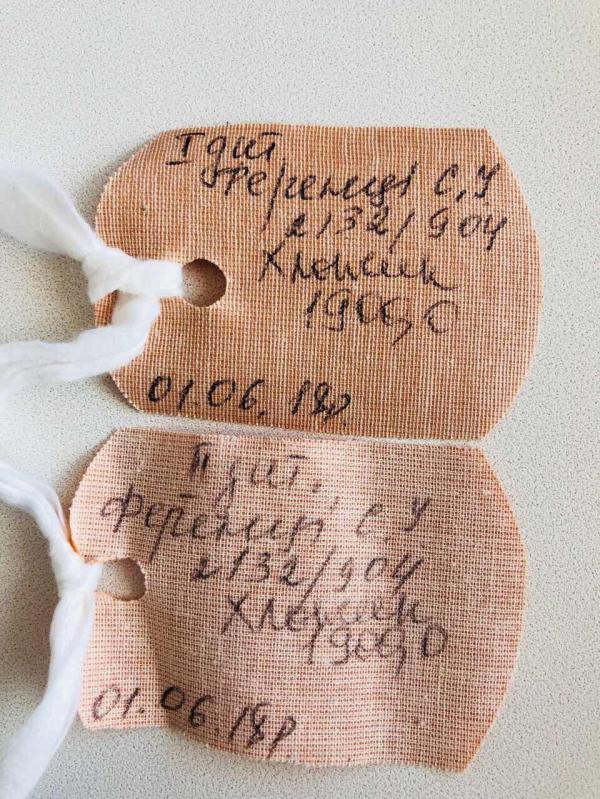 I дит
Ференци С, У
2132/904
Хлопчик
1900,0
01.06.18р.
II дит.
Ференци С, У
2132/904
Хлопчик
1900,0
01.06.18р